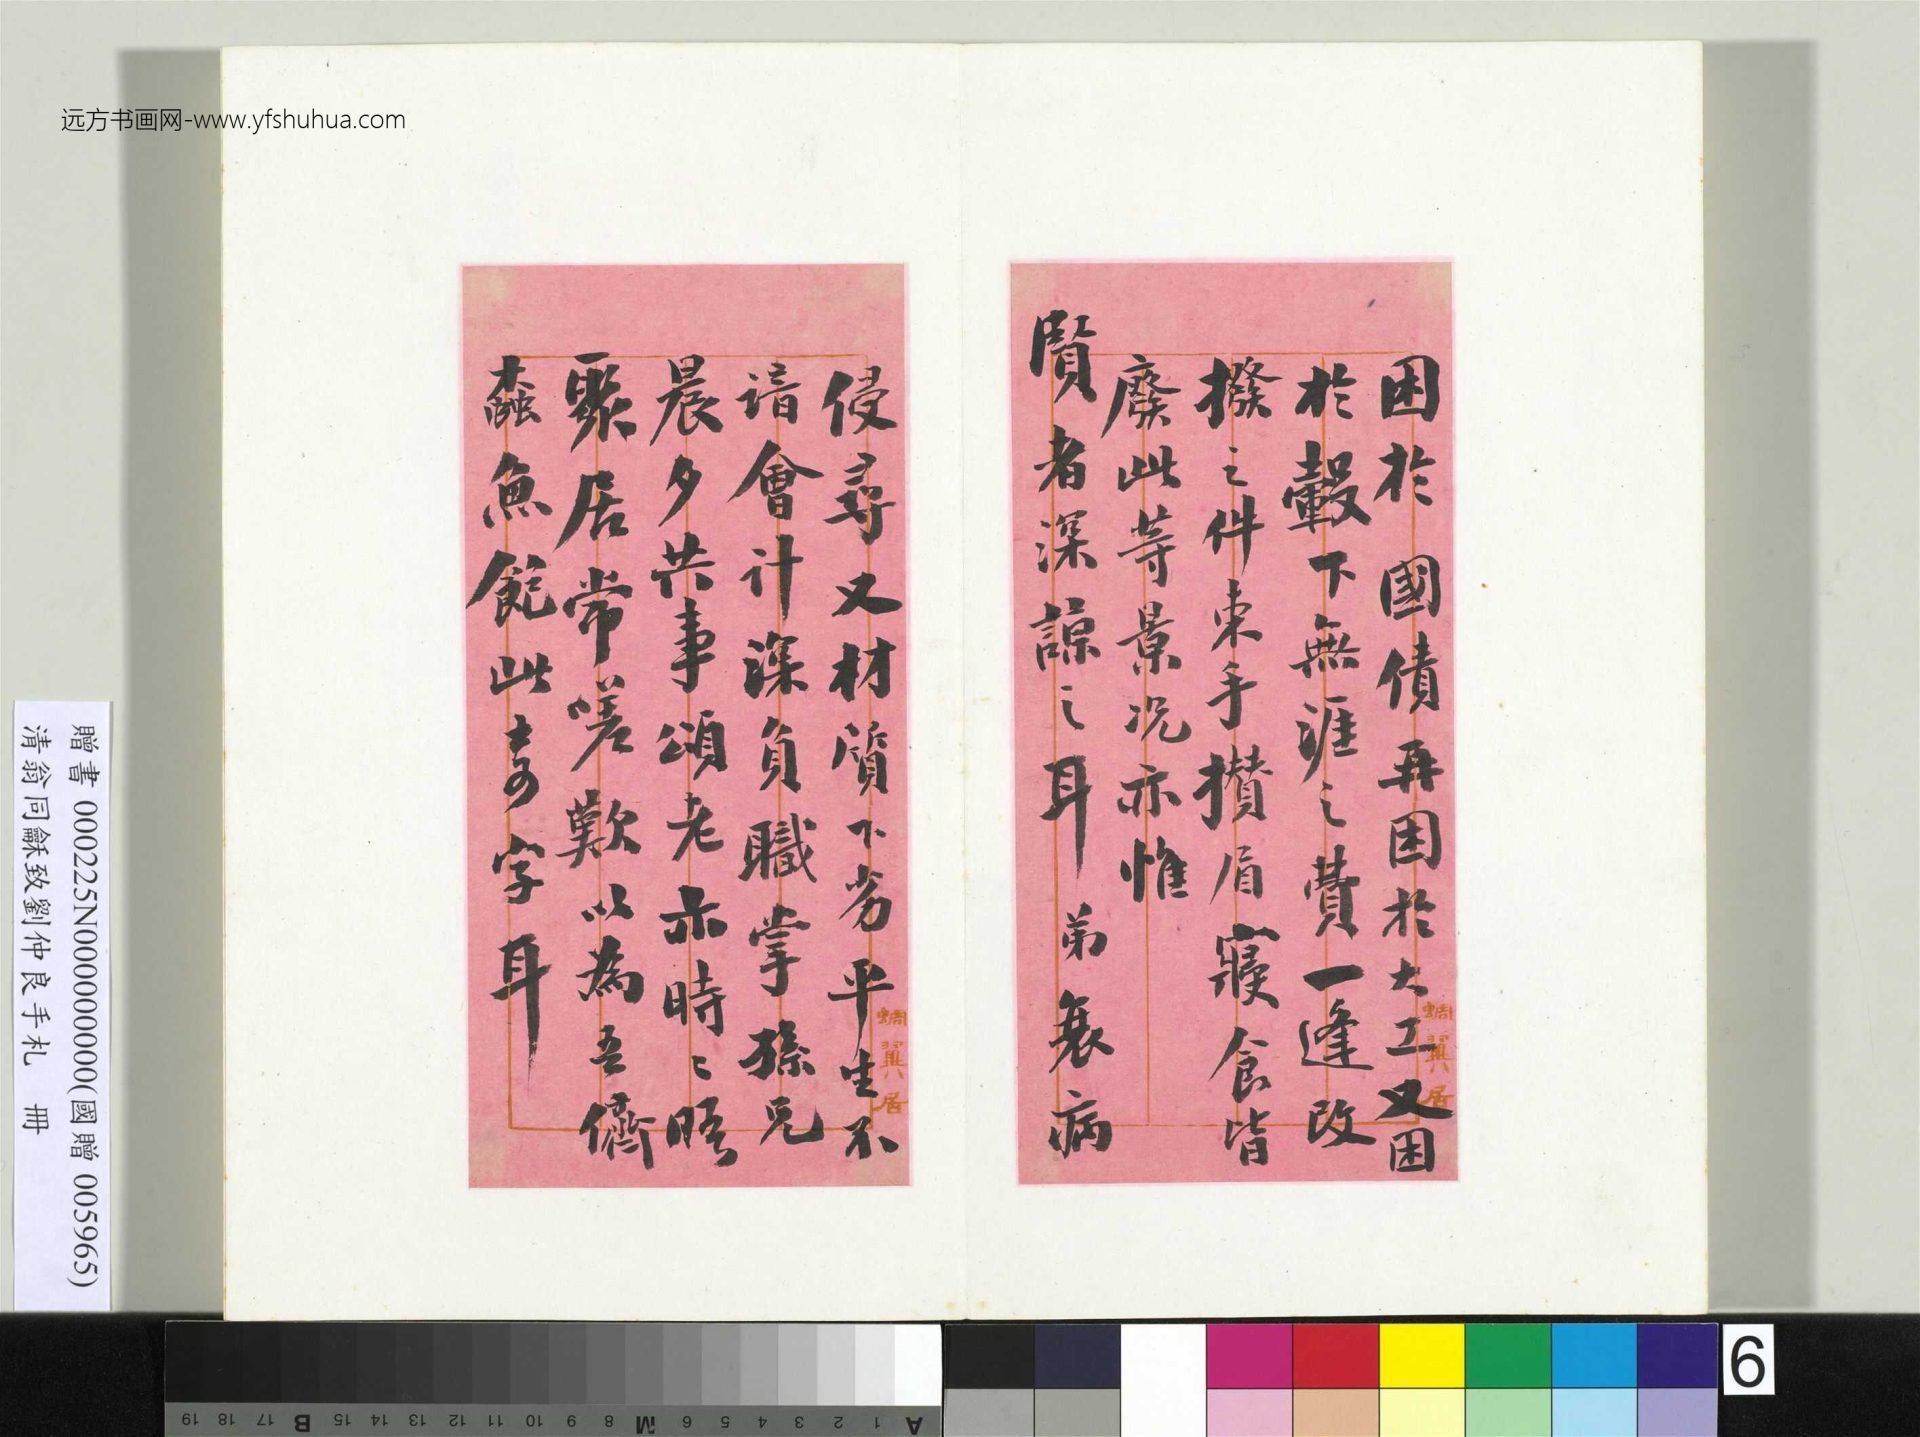 远方书画网-www.yfshuhua.com
困於國債再困於大工又困
於轂下無涯之費一逢改
撥之件束手攢眉寢食皆
廢此等景況亦惟
賢者深諒之耳弟衰病
侵尋又材質下劣平生不
諳會計深負職掌孫兄
晨夕共事頌老亦時〻晤
聚居常嗟歎以為吾儕
蠹魚飽此奇字耳
贈書 000225N000000000(國贈 005965)
清翁同龢致劉仲良手札 冊
A 1 2 3 4 5 6 M 8 9 10 11 12 13 14 15 B 17 18 19
6